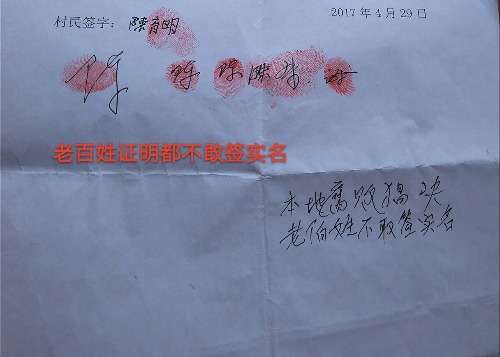 2017年4月29日
村民签字：陳育明
老百姓证明都不敢签实名
本地腐败猖决
老伯姓不敢签实名